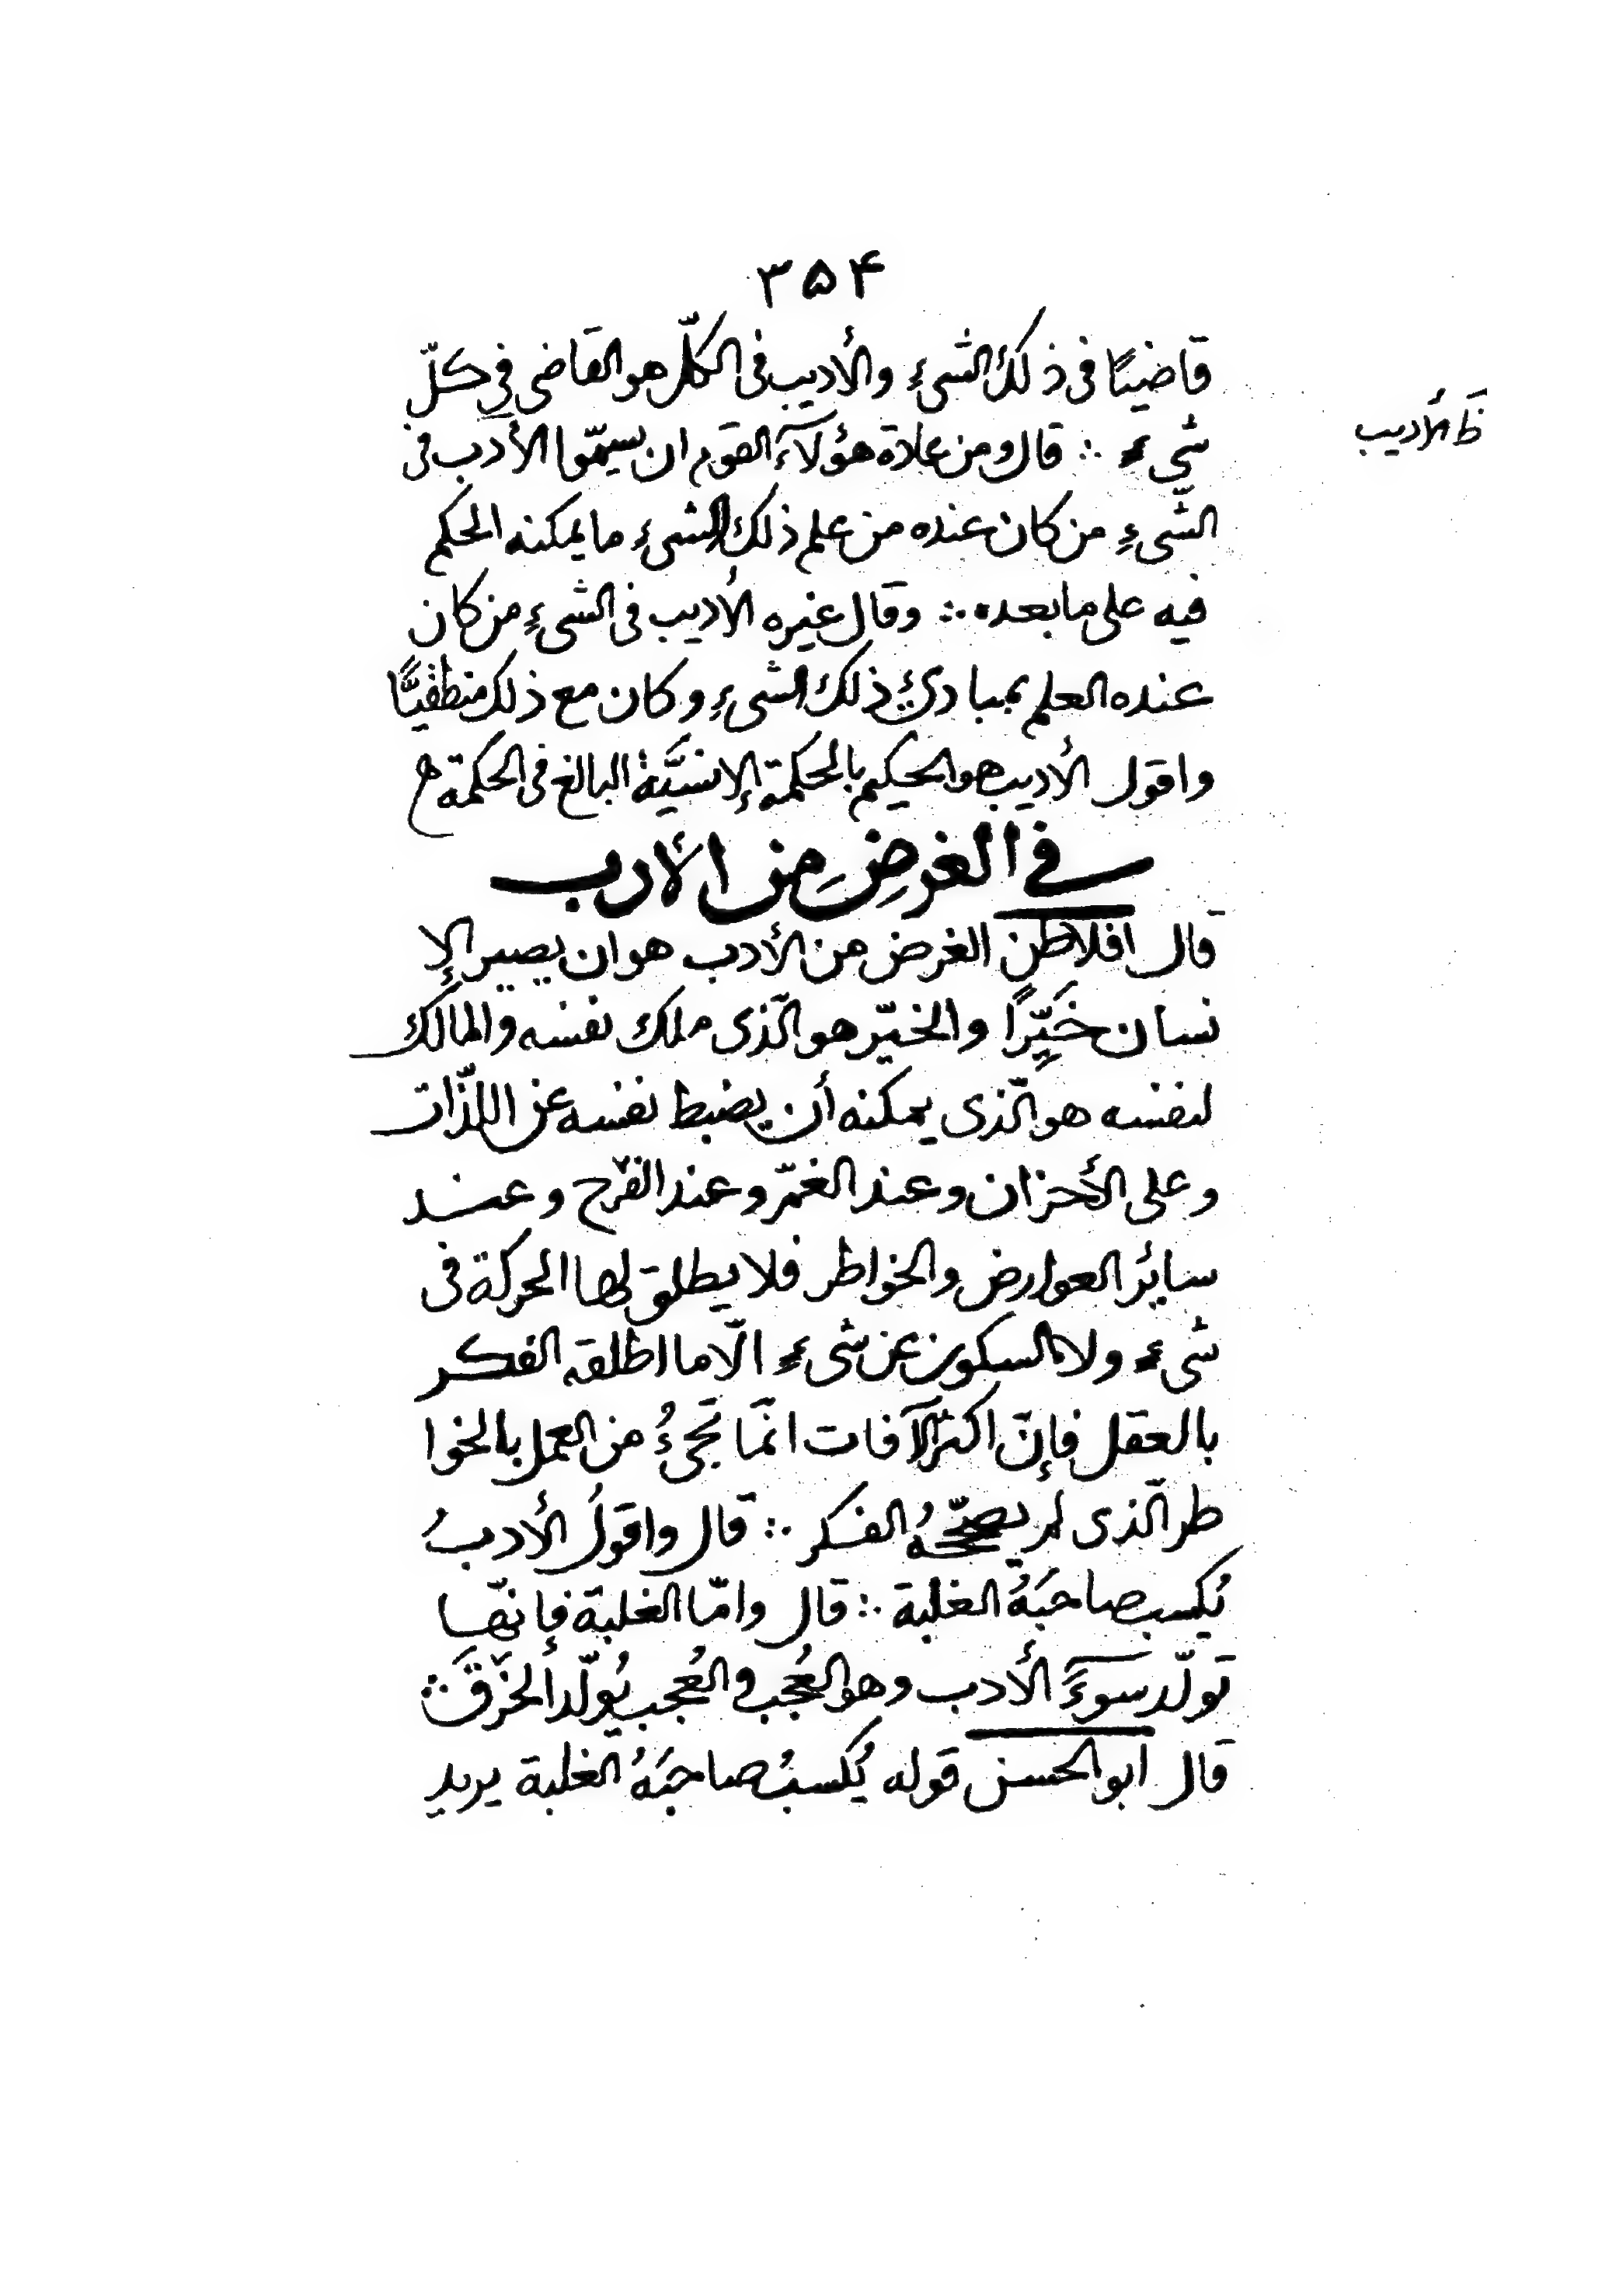 ٣۵۴
قاضيًا فى ذلك الشىءِ والأديب فى الكلّ هو القاضى فى كلّ
شىءٍ ∴ قال ومن عادة هؤلآءَ القوم ان يسمّوا الأدَب فى
ظَ الأديب
الشّىءِ من كان عنده من علم ذلك الشىءِ ما يمكنه الحكم
فيه على ما بعده ∴ وقال غيره الأديب فى الشىءِ من كان
عنده العلم بمبادئِ ذلك الشىءِ وكان مع ذلك منطقيًّا
واقول الأديب هو الحكيم بالحكمة الإنسيَّة البالغ فى الحكمة ه
فى الغرضِ مِن الأدب
قال افلاطن الغرض من الأدب هو ان يصير الإ
نسان خَيِّرًا والخيّر هو الّذى ملك نفسه والمالك
لنفسه هو الّذى يمكنه أن يضبط نفسه عن اللذّات
وعلى الأحزان وعند الغمّ وعند الفرح وعند
سائر العوارض والخواطر فلا يطلق لها الحركة فى
شىءٍ ولا السكون عن شىءٍ الّا ما اطلقه الفكر
بالعقل فإنّ اكثر الآفات انّما تجىءُ من العمل بالخوا
طر الّذى لم يصحّحهُ الفكر ∴ قال واقولُ الأدبُ
يُكسب صاحبَهُ الغلبة ∴ قال وامّا الغلبة فإنّها
تولّد سوءَ الأدب وهو العُجب والعُجب يُولّد الخرقَ ∴
قال ابو الحسن قوله يُكسبُ صاحبَهُ الغلبة يريد